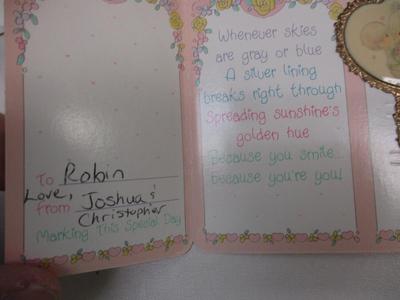 To Robin
Love,
from Joshua &
Christopher
Marking This Special Day
Whenever skies
are gray or blue
A silver lining
breaks right through
Spreading sunshine's
golden hue
Because you smile...
because you're you!